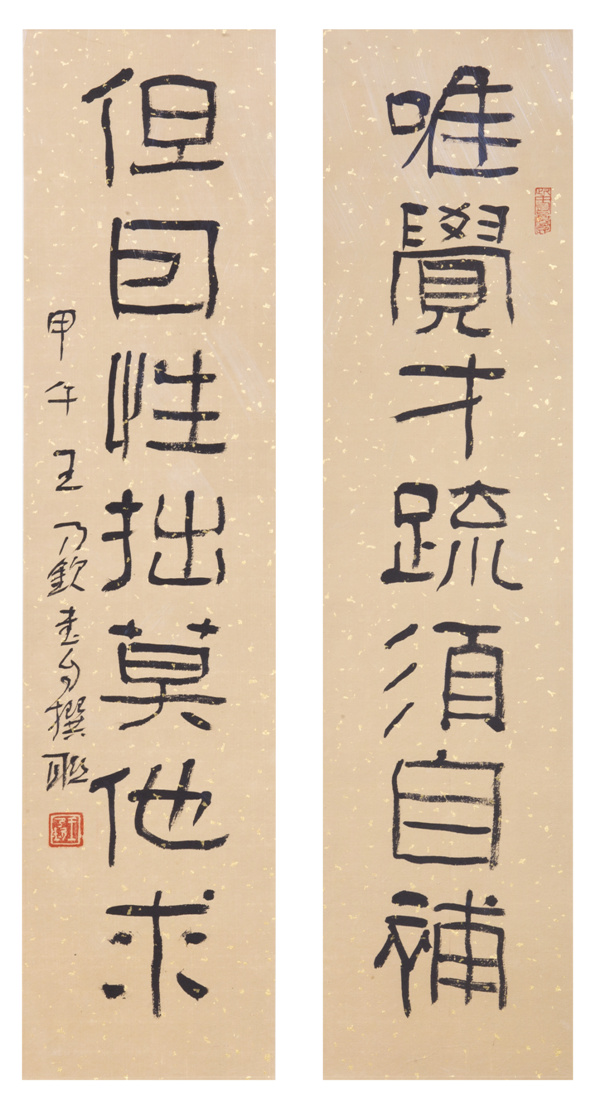 唯覺才疏須自補
但因性拙莫他求
甲午王乃欽書自撰聯